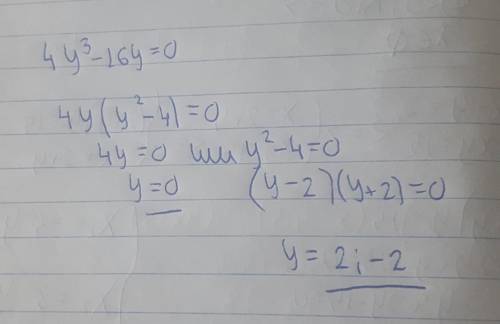 4y³-16y=0
4y(y²-4)=0
4y=0 или y²-4=0
y=0 (y-2)(y+2)=0
y= 2; -2